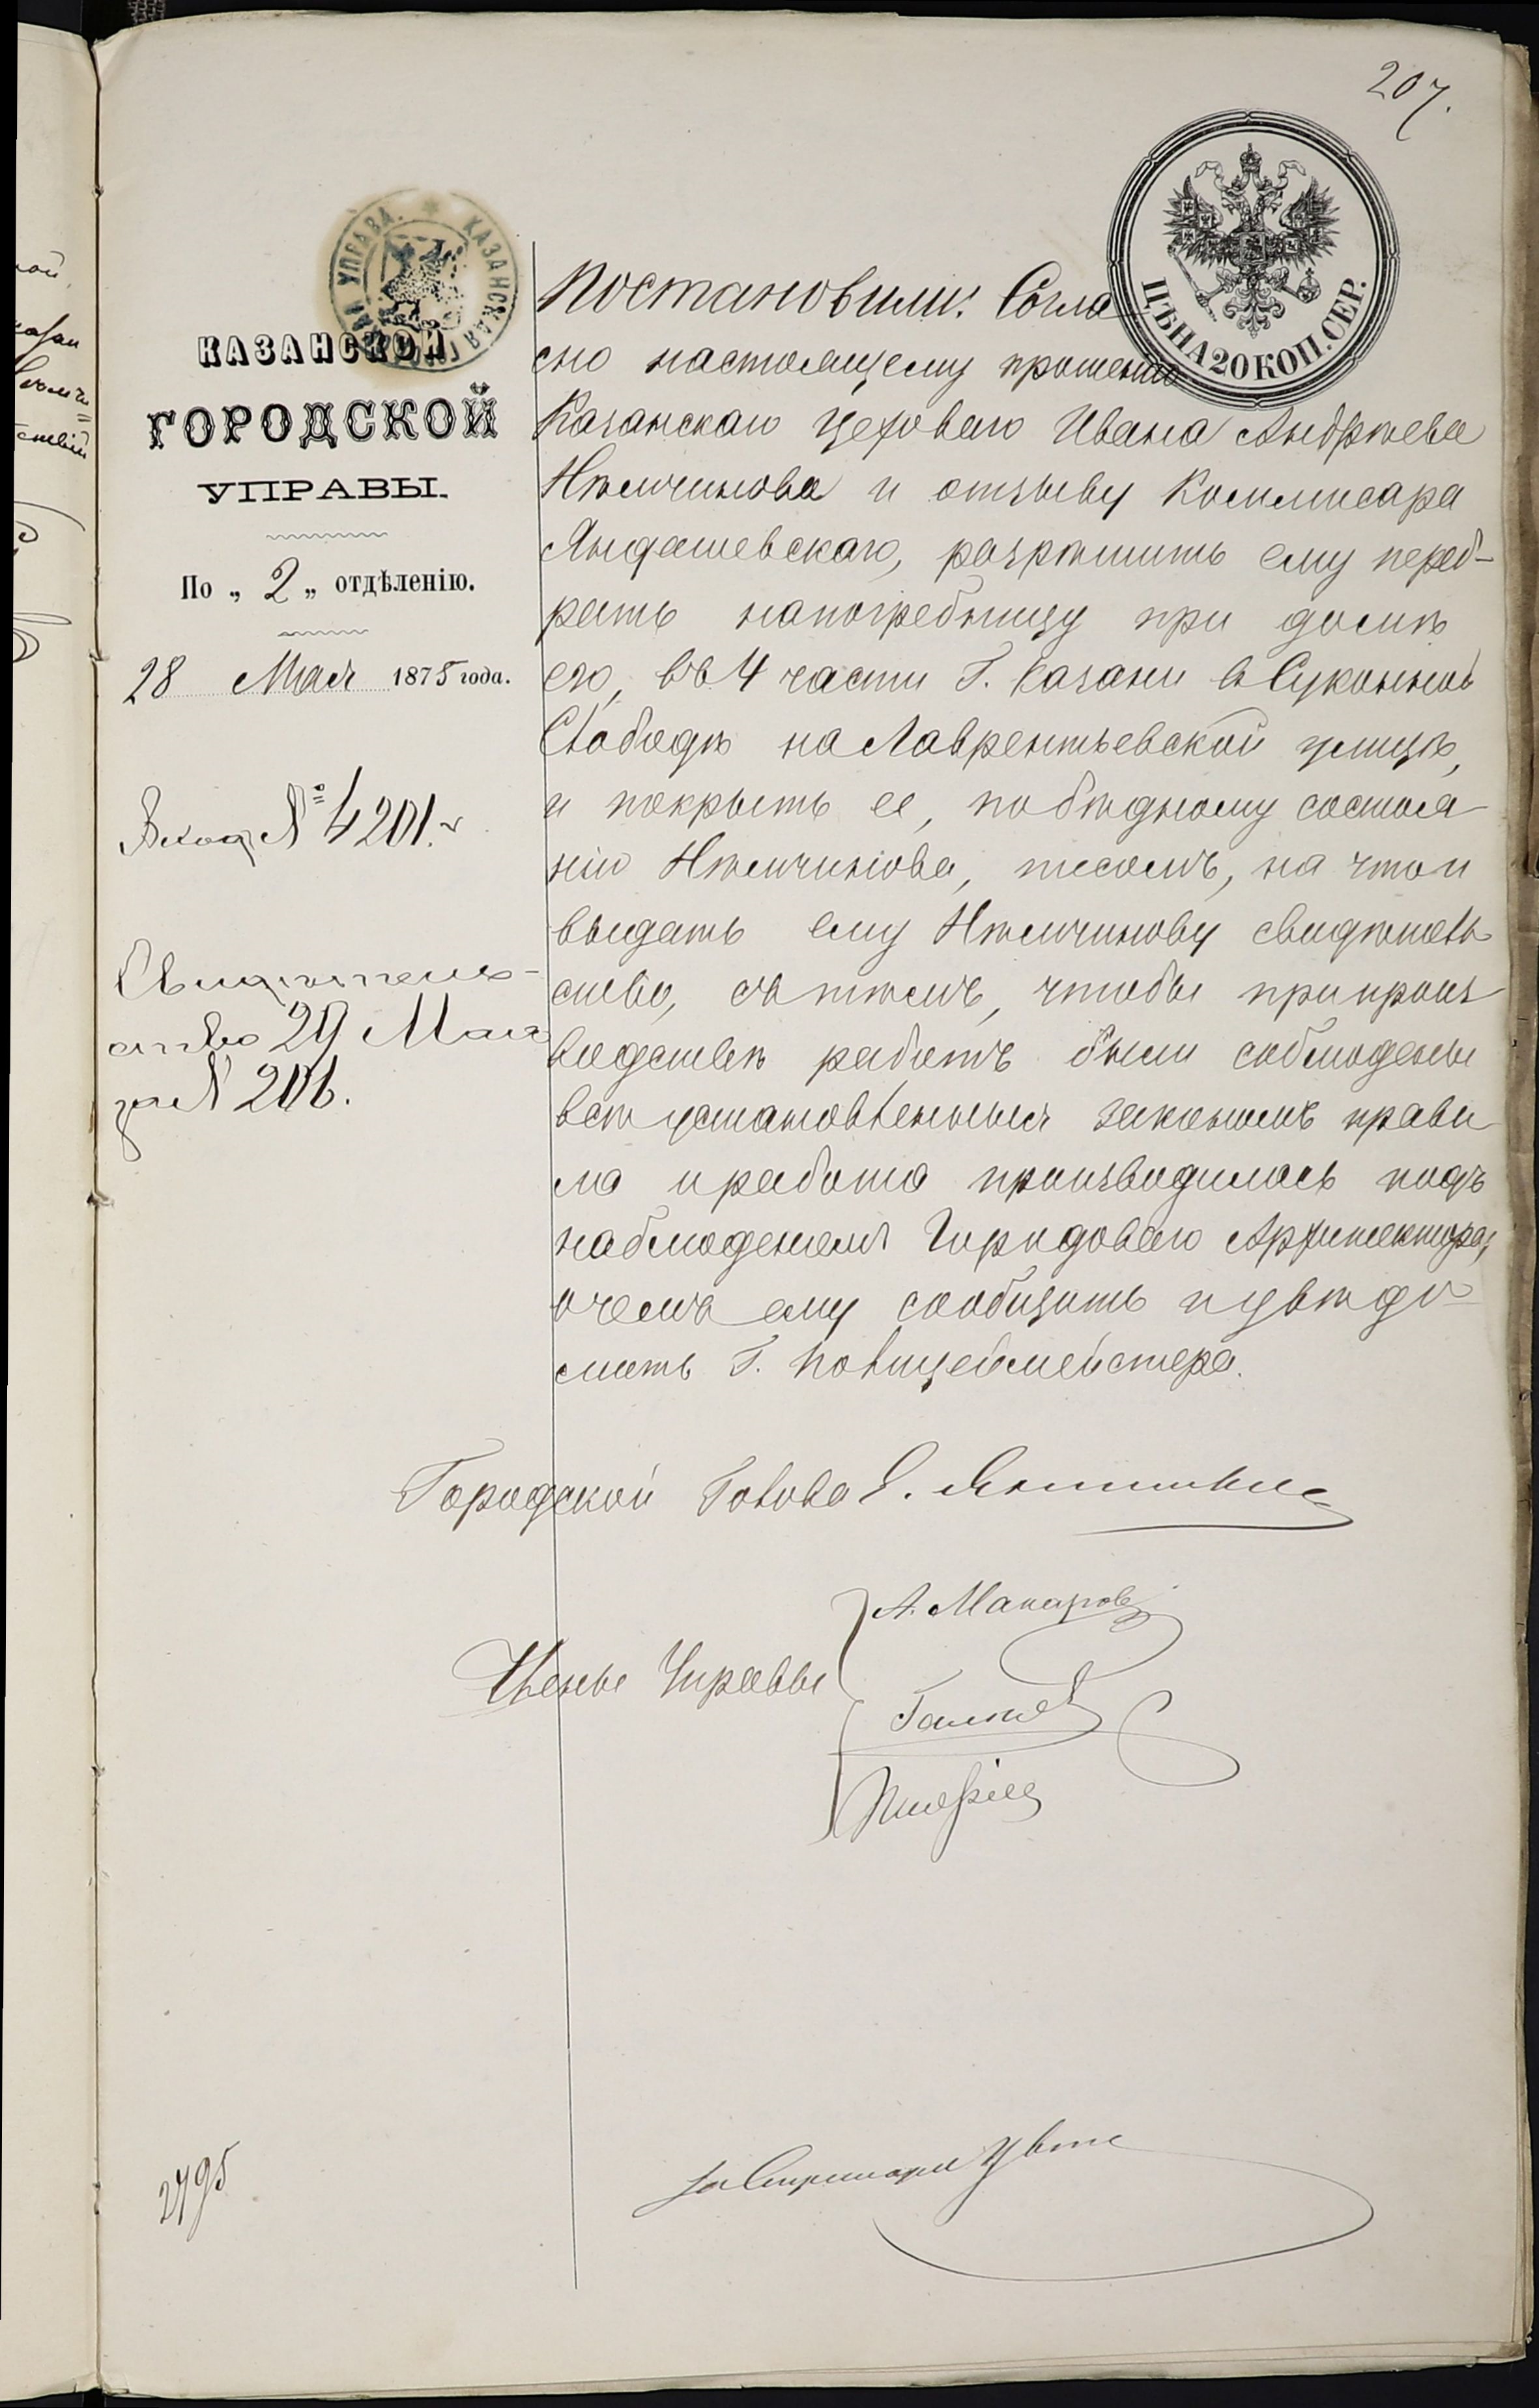 207.
ЦѢНА 20 КОП. СЕР.
КАЗАНСКАЯ ГОРОДСКАЯ УПРАВА.
КАЗАНСКОЙ
ГОРОДСКОЙ
УПРАВЫ.
По „ 2 „ отдѣленію.
28 Мая 1875 года.
Вход № 4201.
Свидѣтель-
ство 29 Мая
за № 206.
Постановили: Согла
сно настоящему прошенію
Казанскаго Цеховаго Ивана Андрѣева
Нѣмчинова и отзыву Коммисара
Яндашевскаго, разрѣшить ему переб-
рать напогребницу при домѣ
его, въ 4 части Г. Казани въ Суконной
Слободѣ на Лаврентьевской улицѣ,
и покрыть ее, по бѣдному состоя
нію Нѣмчинова, тесомъ, на что и
выдать ему Нѣмчинову свидѣтель
ство, съ тѣмъ, чтобы при произ
водствѣ работъ были соблюдены
всѣ установленныя закономъ прави
ла и работа производилась подъ
наблюденіемъ Городоваго Архитектора,
о чемъ ему сообщить и увѣдо-
мить Г. Полицеймейстера.
Городской Голова Е.
Члены Управы
А. Макаров
За Секретаря
2795